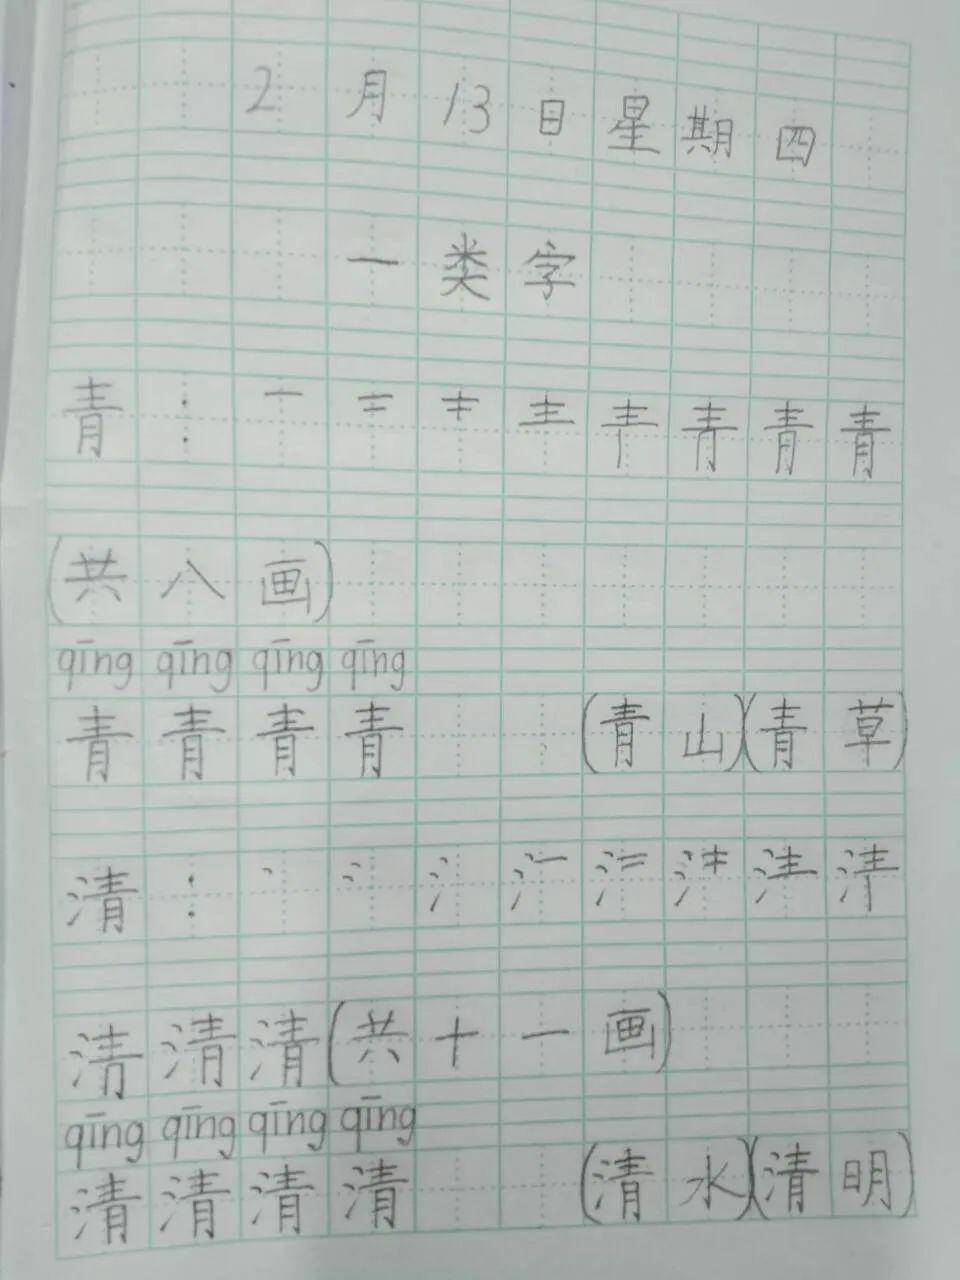 2月13日星期四
一类字
青：一 二 キ 龶 青 青 青
(共八画)
qīng qīng qīng qīng
青青青青 (青山)(青草)
清：丶 冫 氵
清清清(共十一画)
qīng qīng qīng qīng
清清清清 (清水)(清明)